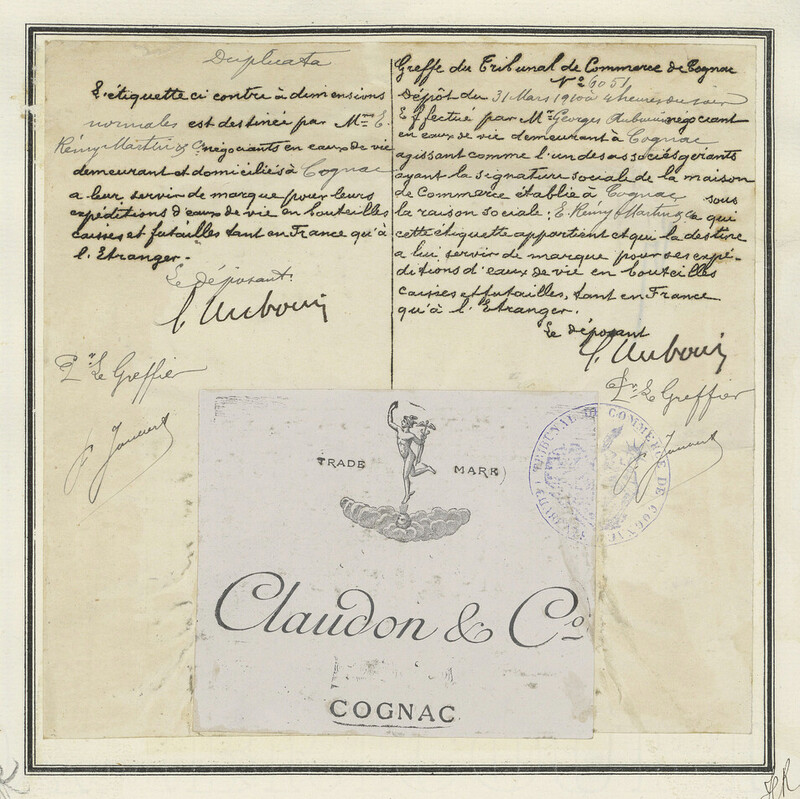 Duplicata
L'étiquette ci contre à dimensions
normales est destinée par Mrs E.
Rémy Martin & Co négociants en eaux de vie
demeurant et domiciliés à Cognac
a leur servir de marque pour leurs
expéditions d'eaux de vie en bouteilles
caisses et futailles tant en France qu'à
l'Etranger.
Le déposant
G. Auboin
Pr Le Greffier
Greffe du Tribunal de Commerce de Cognac
No 6051
Dépôt du 31 Mars 1900 à 4 heures du soir
Effectué par Mr Georges Auboin négociant
en eaux de vie demeurant à Cognac
agissant comme l'un des associés gérants
ayant la signature sociale de la maison
de Commerce établie à Cognac sous
la raison sociale : E. Rémy Martin & Co qui
cette étiquette appartient et qui la destine
a lui servir de marque pour ses expé-
ditions d'eaux de vie en bouteilles
caisses et futailles, tant en France
qu'à l'Etranger.
Le déposant
G. Auboin
Pr Le Greffier
TRIBUNAL DE COMMERCE DE COGNAC
TRADE MARK
Claudon & Co
COGNAC